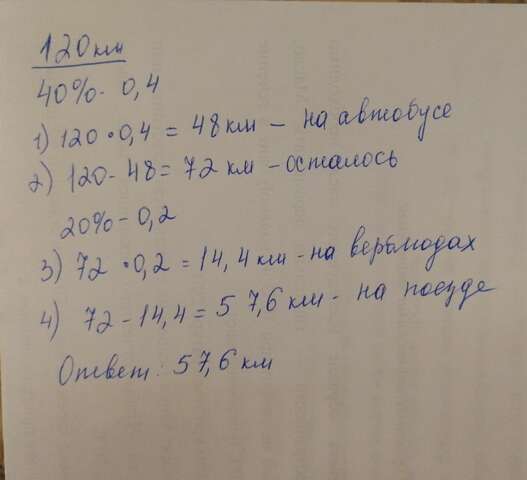 120км
40% - 0,4
1) 120 · 0,4 = 48 км - на автобусе
2) 120 - 48 = 72 км - осталось
20% - 0,2
3) 72 · 0,2 = 14,4 км - на верблюдах
4) 72 - 14,4 = 57,6 км - на поезде
Ответ: 57,6 км